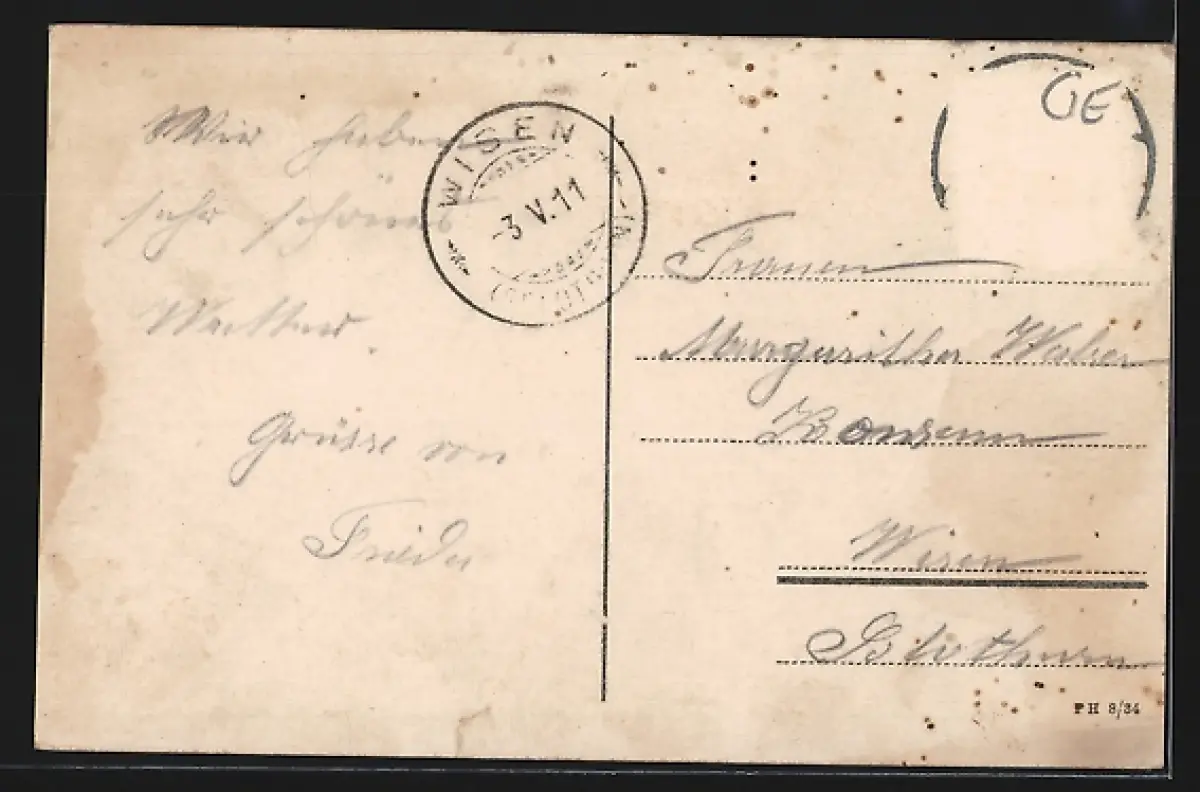 Wir haben
sehr schönes
Wetter.
Grüsse von
Frieda
WISEN
-3.V.11
(SOLOTH
GE
Frauen
Margaritha
Wisen
Solothurn
PH 8/34